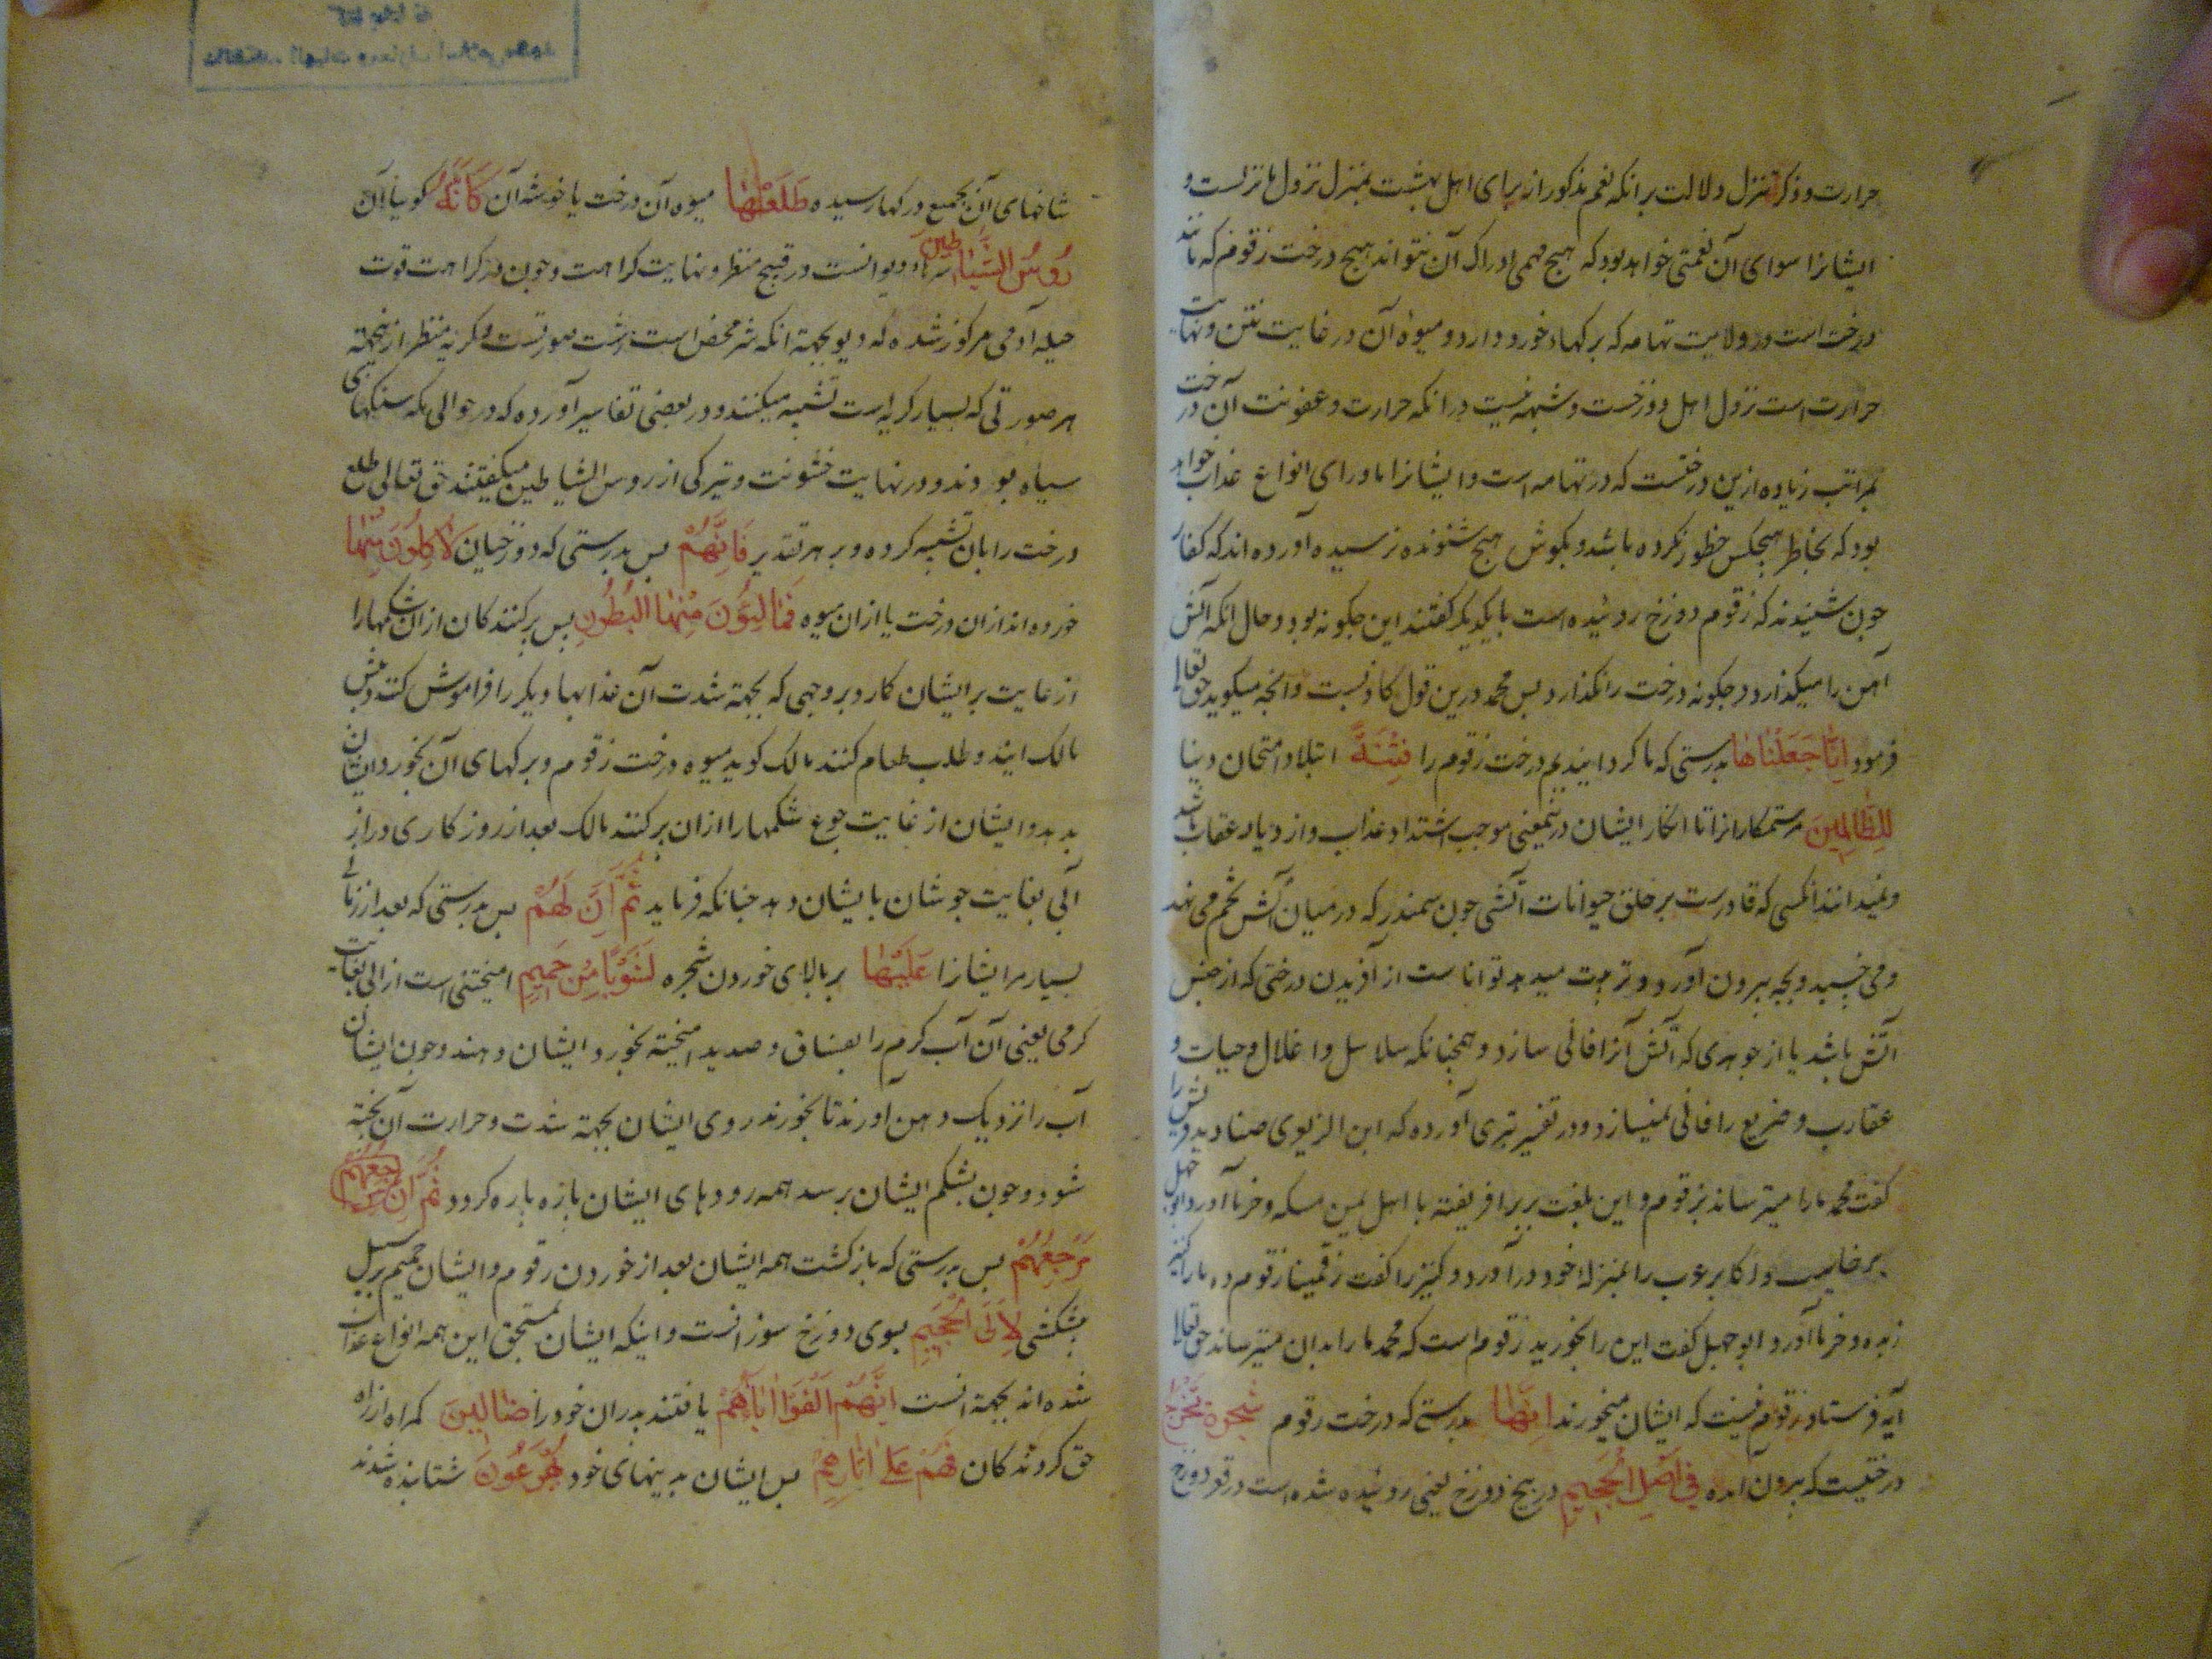 حرارت و ذکر تنزل دلالت برانکه نعم مذکور از برای اهل بهشت بمنزل نزول نازلست و
ایشانرا سوای آن نعمتی خواهد بود که هیچ فهمی ادراک آن نتواند هیچ درخت زقوم که مانند
درخت است در ولایت تهامه که برکهاء خورد دارد و میوه آن در غایت نتن و نهایت
حرارت است نزول اهل دوزخست و شبهه نیست درانکه حرارت و عفونت آن درخت
بمراتب زیاده ازین درختست که در تهامه است و ایشانرا ماورای انواع عذاب خواهد
بود که بخاطر هیچکس خطور نکرده باشد و بکوش هیچ شنونده نرسیده آورده اند که کفار
جون شنیدند که زقوم دوزخ روئیده است با یکدیکر کفتند این جکونه بود و حال انکه آتش
آهن را میکذارد جکونه درخت را نکذارد بس محمد درین قول کاذبست و انجه میکوید حق تعالی
فرمود اِنّا جَعَلْناها بدرستی که ما کردانیدیم درخت زقوم را فِتْنَةً ابتلا و امتحان دنیا
لِلظّالِمِینَ مر ستمکارانرا تا انکار ایشان درینمعنی موجب اشتداد عذاب و ازدیاد عقاب باشد
و نمیدانند انکسی که قادرست بر خلق حیوانات آتشی جون سمندر که در میان آتش تخم می نهد
و می خسبد و بجه بیرون آورد و تربیت میدهد تواناست از آفریدن درختی که از جنس
آتش باشد یا از جوهری که آتش آنرا فانی سازد و همچنانکه سلاسل و اغلال و حیات و
عقارب و ضریع را فانی نمیسازد و در تفسیر آورده که ابن الزبعری صنادید قریش را
کفت محمد مارا میترساند بزقوم و این بلغت بربر افریقیه با اهل یمن مسکه و خرما آورد ابو جهل
برخاست و اکابر عرب را بمنزله خود درآورد و کنیز را کفت زقمینا زقوم ده مارا کنیز
زبده و خرما آورد ابوجهل کفت این را بخورید زقوم است که محمد مارا بدان میترساند حق تعالی
آیه فرستاد زقوم نیست که ایشان میخورند اِنَّها بدرستی که درخت زقوم شَجَرةٌ تَخْرُجُ
درختیست که بیرون آمده فِی اَصْلِ الْجَحِیمِ در بیخ دوزخ یعنی روئیده شده است در قعر دوزخ
شاخهای آن بجمیع درکهار سیده طَلْعُها میوه آن درخت یا خوشه آن کَاَنَّهُ کویا آن
رُؤُسُ الشَّیاطِینِ سرهاء دیوانست در قبیح منظر و نهایت کراهت و جون در کراهت قوت
جبله آدمی مرکوز شده که دیو بجهة انکه شر محض است زشت صورتست و کریه منظر ازینجهة
هر صورتی که بسیار کریه است تشبیه میکنند و در بعضی تفاسیر آورده که در حوالی مکه سنکهای
سیاه بودند و در نهایت خشونت و تیرکی از رؤس الشیاطین میکفتند حق تعالی طلع
درخت را بان تشبیه کرده و بر هر تقدیر فَاِنَّهُمْ بس بدرستی که دوزخیان لَآکِلُونَ مِنْها
خورده اند ازان درخت یا ازان میوه فَمالِئُونَ مِنْهَا الْبُطُونِ بس پر کنندکان ازان شکمهارا
از غایت بر ایشان کارد بر وجهی که بجهة شدت آن عذابها دیکر را فراموش کنند و بس
مالک ایند و طلب طعام کنند مالک کوید میوه درخت زقوم و برکهای آن بخورد ایشان
بدهد و ایشان از غایت جوع شکمهارا ازان پر کنند مالک بعد از روزکاری دراز
آبی بغایت جوشان بایشان دهد جنانکه فرماید ثُمَّ اَنَّ لَهُمْ بس بدرستی که بعد از زمانی
بسیار مر ایشانرا عَلَیْها بر بالای خوردن شجره لَشَوْبًا مِنْ حَمِیمٍ امیختنی است از آبی بغایت
کرمی یعنی آن آب کرم را بغساق و صدید امیخته بخورد ایشان دهند و جون ایشان
آب را نزدیک دهن آورند تا بخورند روی ایشان بجهة شدت و حرارت آن پخته
شود و جون بشکم ایشان برسد همه رودهای ایشان پاره پاره کردد ثُمَّ اِنَّ مَرْجِعَهُمْ
مَرْجِعَهُمْ بس بدرستی که بازکشت همه ایشان بعد از خوردن زقوم و ایشان حمیم بر سبیل
بیشکشی لَاِلَی الْجَحِیمِ بسوی دوزخ سوزانست و اینکه ایشان مستحق این همه انواع عذاب
شده اند بجهة انست اِنَّهُمْ اَلْفَوْا اٰبٰاءَهُمْ یافتند بدران خود را ضالِّینَ کمراه از راه
حق کردندکان فَهُمْ عَلٰی اٰثارِهِمْ بس ایشان به بیهای خود یُهْرَعُونَ شتابنده شدند